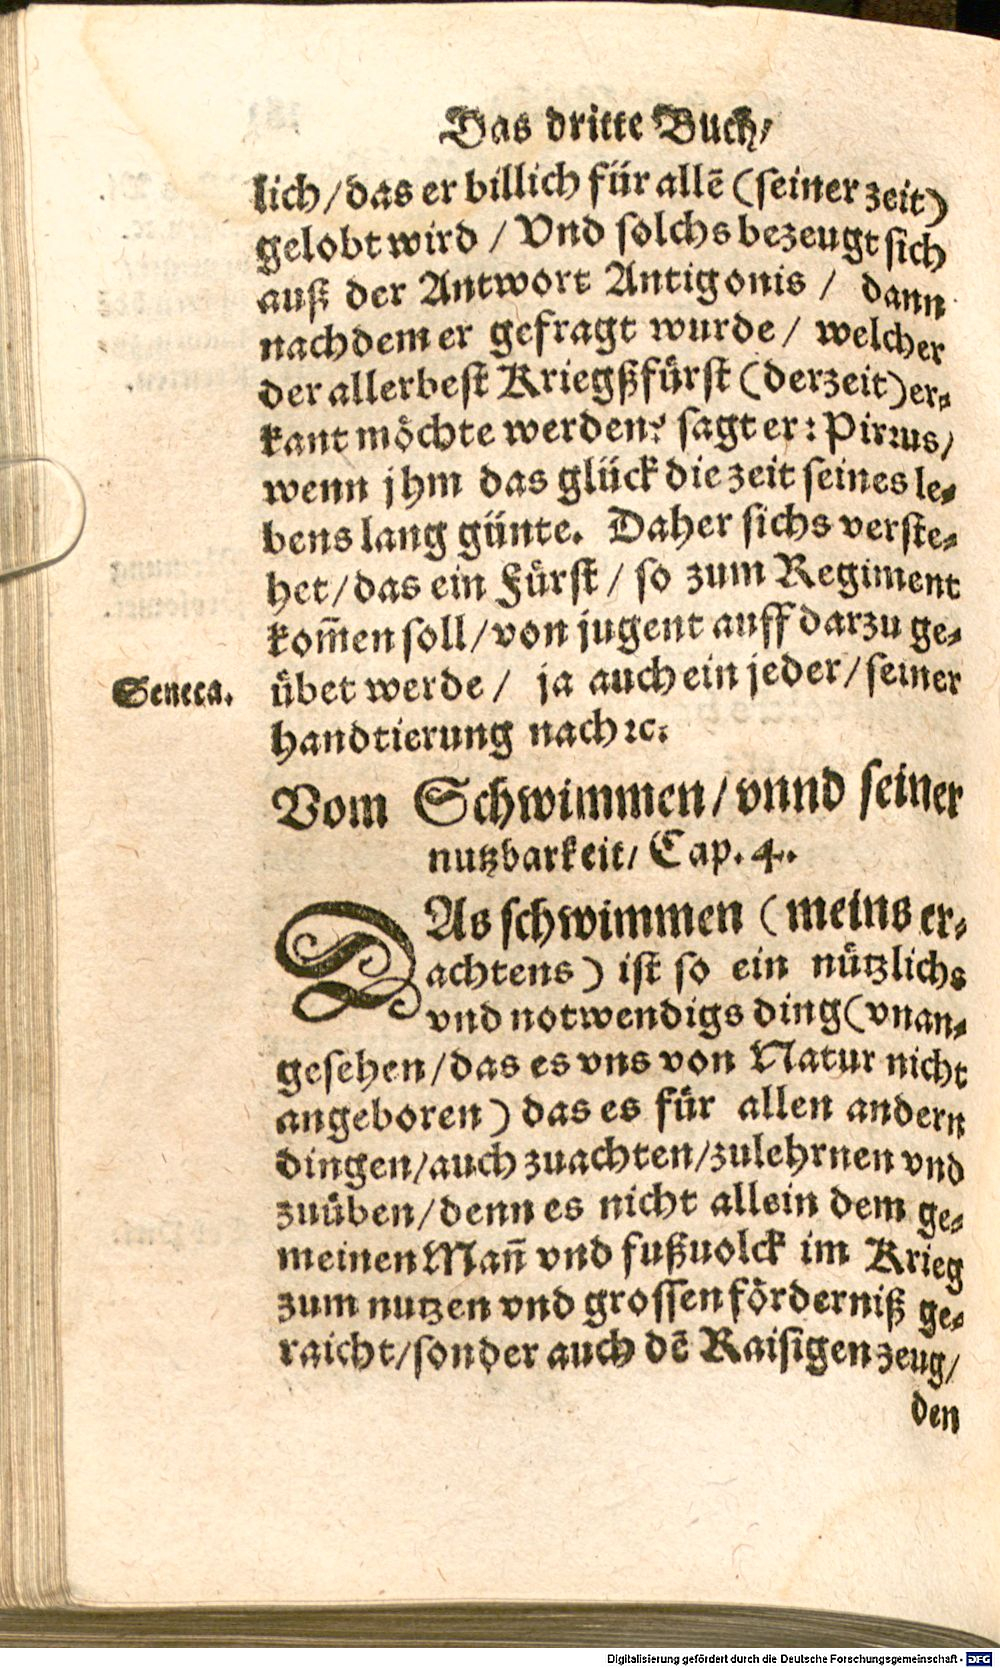 Das dritte Buch/
lich/das er billich für allē (seiner zeit)
gelobt wird / Vnd solchs bezeugt sich
auß der Antwort Antigonis / dann
nachdem er gefragt wurde / welcher
der allerbest Kriegßfürst (derzeit) er-
kant möchte werden? sagt er: Pirrus/
wenn jhm das glück die zeit seines le-
bens lang günte. Daher sichs verste-
het/das ein Fürst / so zum Regiment
kom̄en soll/von jugent auff darzu ge-
Seneca. übet werde / ja auch ein jeder/seiner
handtierung nach ꝛc.
Vom Schwimmen/vnnd seiner
nutzbarkeit/ Cap. 4.
DAs schwimmen (meins er-
achtens) ist so ein nützlichs
vnd notwendigs ding (vnan-
gesehen/das es vns von Natur nicht
angeboren) das es für allen andern
dingen/auch zuachten/zulehrnen vnd
zuüben/denn es nicht allein dem ge-
meinen Man̄ vnd fußuolck im Krieg
zum nutzen vnd grossen förderniß ge-
raicht/sonder auch dē Raisigen zeug/
den
Digitalisierung gefördert durch die Deutsche Forschungsgemeinschaft - DFG